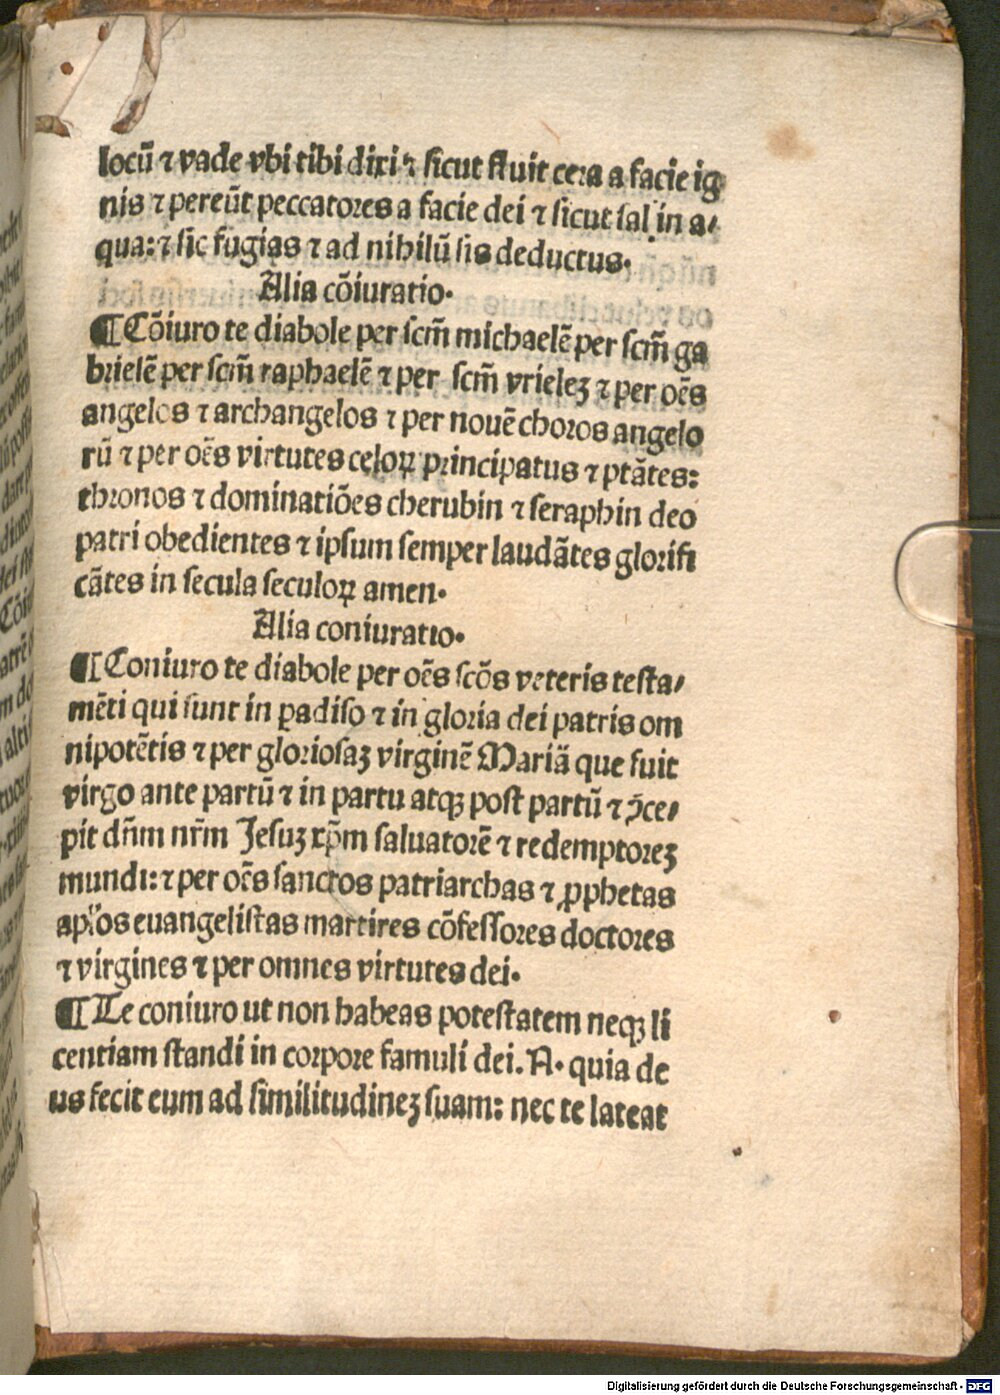 locũ ⁊ vade vbi tibi dixi ⁊ sicut fluit cera a facie ig
nis ⁊ pereũt peccatores a facie dei ⁊ sicut sal in a⸗
qua: ⁊ sic fugias ⁊ ad nihilũ sis deductus.
Alia cõiuratio.
¶ Cõiuro te diabole per scm̃ michaelẽ per scm̃ ga
brielẽ per scm̃ raphaelẽ ⁊ per scm̃ vrieleʒ ⁊ per oẽs
angelos ⁊ archangelos ⁊ per nouẽ choros angelo
rũ ⁊ per oẽs virtutes celoꝝ principatus ⁊ ptãtes:
thronos ⁊ dominatiões cherubin ⁊ seraphin deo
patri obedientes ⁊ ipsum semper laudãtes glorifi
cãtes in secula seculoꝝ amen.
Alia coniuratio.
¶ Coniuro te diabole per oẽs scõs veteris testa⸗
mẽti qui sunt in ꝑadiso ⁊ in gloria dei patris om
nipotẽtis ⁊ per gloriosaʒ virginẽ Mariã que fuit
virgo ante partũ ⁊ in partu atqꝫ post partũ ⁊ ꝯce⸗
pit dñm nr̃m Jesuʒ xp̃m saluatorẽ ⁊ redemptoreʒ
mundi: ⁊ per oẽs sanctos patriarchas ⁊ ꝓphetas
apl̃os euangelistas martires cõfessores doctores
⁊ virgines ⁊ per omnes virtutes dei.
¶ Te coniuro ut non habeas potestatem neqꝫ li
centiam standi in corpore famuli dei. N. quia de
us fecit eum ad similitudineʒ suam: nec te lateat
Digitalisierung gefördert durch die Deutsche Forschungsgemeinschaft - DFG